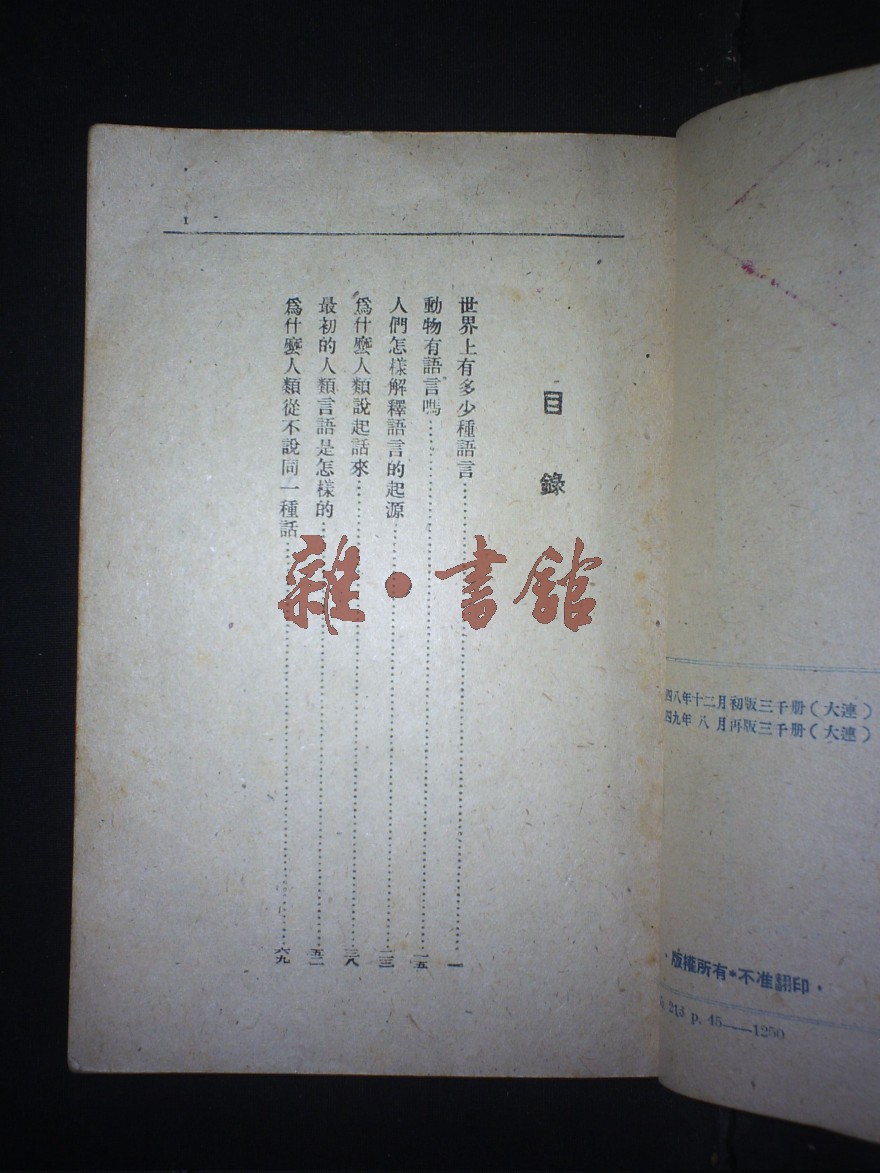 版權所有*不准翻印·
213 p. 45——1250
四八年十二月初版三千册(大連)
四九年 八 月再版三千册(大連)
目錄
世界上有多少種語言……一
動物有語言嗎……一五
人們怎樣解釋語言的起源……二三
爲什麼人類說起話來……三八
最初的人類言語是怎樣的……五二
爲什麼人類從不說同一種話……六九
1
雜·書館